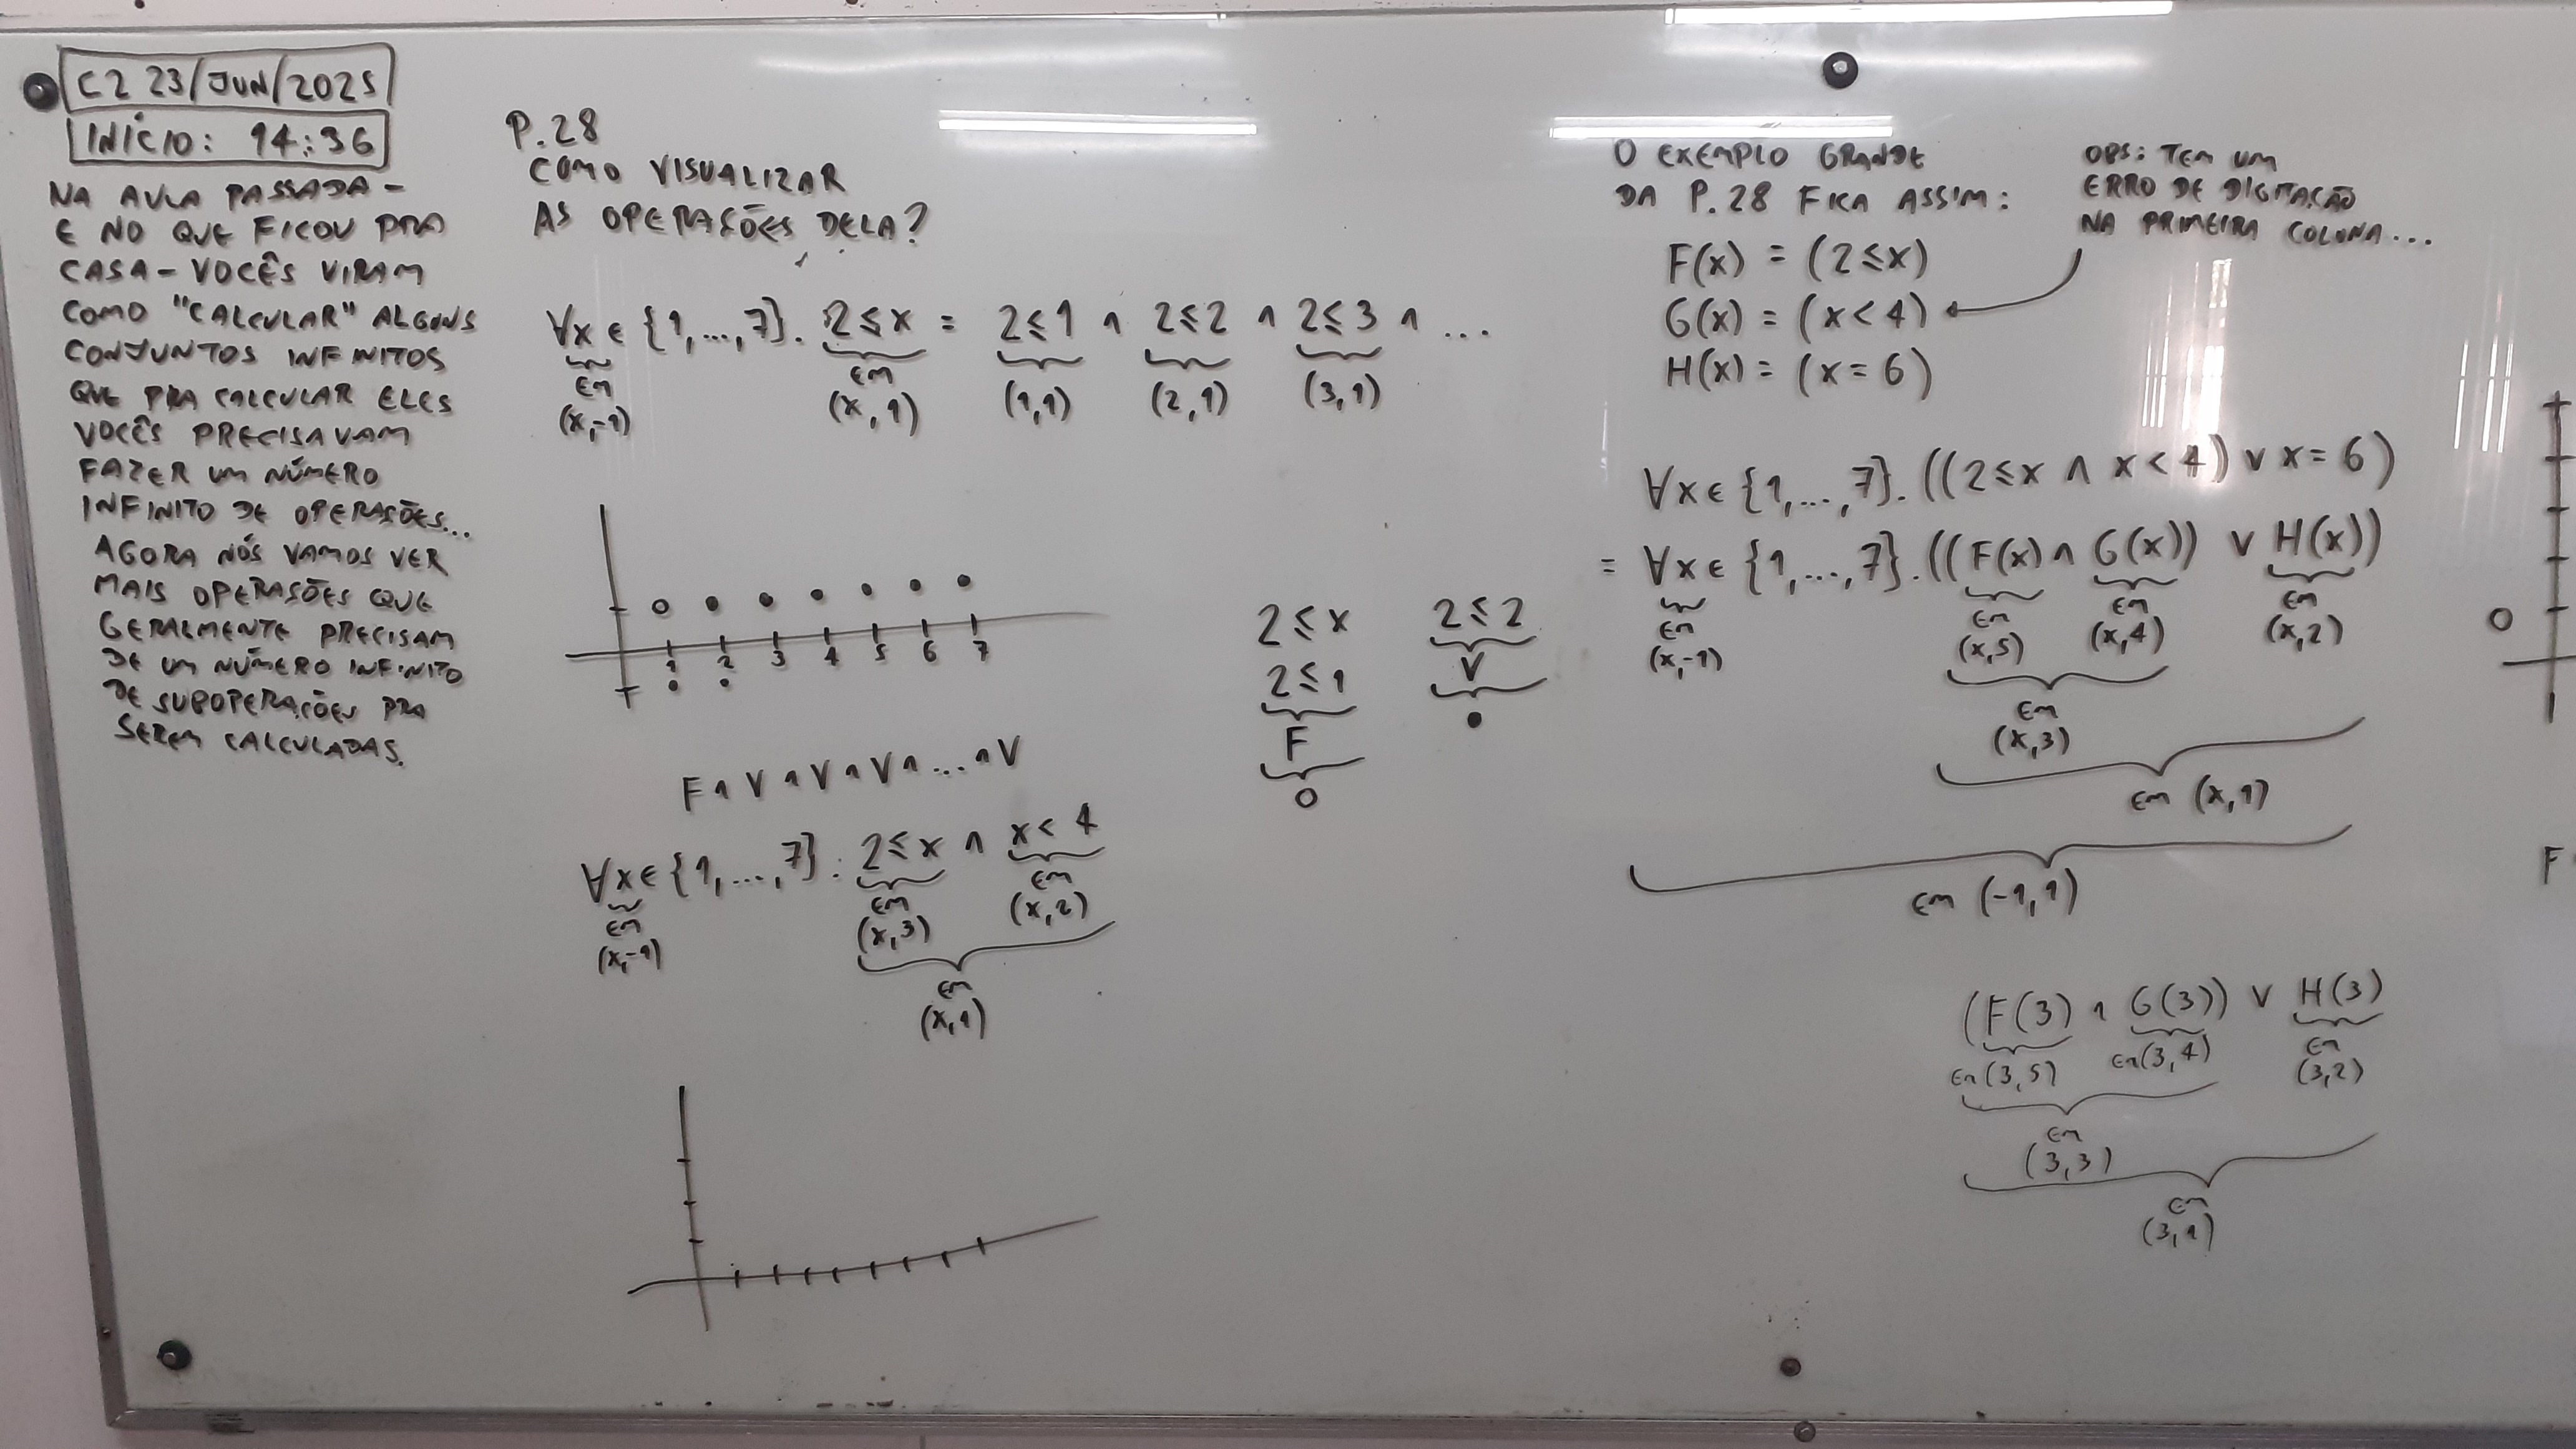 C2 23/JUN/2025
INÍCIO: 14:36
NA AULA PASSADA -
E NO QUE FICOU PRA
CASA - VOCÊS VIRAM
COMO "CALCULAR" ALGUNS
CONJUNTOS INFINITOS
QUE PRA CALCULAR ELES
VOCÊS PRECISAVAM
FAZER UM NÚMERO
INFINITO DE OPERAÇÕES...
AGORA NÓS VAMOS VER
MAIS OPERAÇÕES QUE
GERALMENTE PRECISAM
DE UM NÚMERO INFINITO
DE SUBOPERAÇÕES PRA
SEREM CALCULADAS.
P.28
COMO VISUALIZAR
AS OPERAÇÕES DELA?
∀x ∈ {1,...,7}. 2≤x = 2≤1 ∧ 2≤2 ∧ 2≤3 ∧ ...
EM EM
(x,-1) (x,1) (1,1) (2,1) (3,1)
1 2 3 4 5 6 7
F ∧ V ∧ V ∧ V ∧ ... ∧ V
∀x∈{1,...,7}. 2≤x ∧ x<4
EM EM EM
(x,-1) (x,3) (x,2)
EM
(x,1)
2≤x 2≤2
2≤1 V
F
O EXEMPLO GRANDE
DA P.28 FICA ASSIM:
OBS: TEM UM
ERRO DE DIGITAÇÃO
NA PRIMEIRA COLUNA...
F(x) = (2≤x)
G(x) = (x<4)
H(x) = (x=6)
∀x∈{1,...,7}.((2≤x ∧ x<4) ∨ x=6)
= ∀x∈{1,...,7}.((F(x) ∧ G(x)) ∨ H(x))
EM EM EM EM
(x,-1) (x,5) (x,4) (x,2)
EM
(x,3)
EM (x,1)
EM (-1,1)
(F(3) ∧ G(3)) ∨ H(3)
EM(3,5) EM(3,4) EM
(3,2)
EM
(3,3)
EM
(3,1)
F